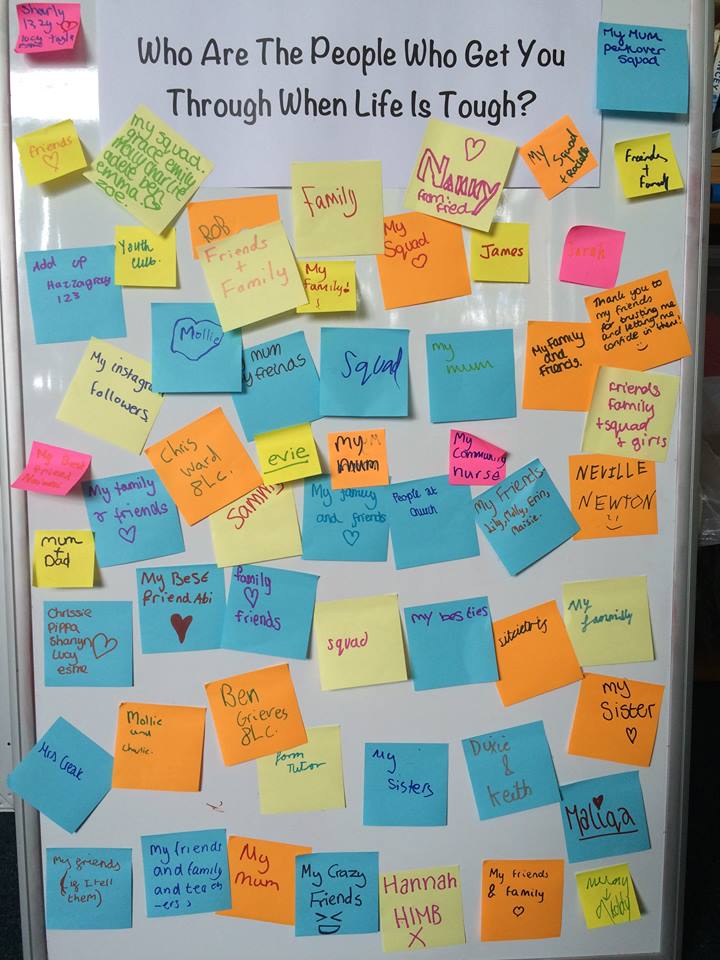 Who Are The People Who Get You
Through When Life Is Tough?
Sharly
My MUM
squad
friends
my squad.
grace emily
adele ben
emma
zoe.
Nanny
from: fred
My
Squad
Friends
+
Family
ROB
Family
My
Squad
Youth
Club.
Friends
+
Family
My
Family!
James
Sarah
Add up
Hazzagray
123
Mollie
mum
My freinds
Squad
my
mum
My Family
and
Friends.
Thank you to
my friends
for trusting me
and letting me
confide in them!
My instagram
followers
friends
family
+squad
+ girls
Chris
Ward
8LC.
evie
My
mum
My
Community
nurse
My Best
Friend
My family
& friends
Sammy
My family
and friends
People at
Church
My Friends,
Lily, Molly, Erin,
Maisie.
NEVILLE
NEWTON
mum
+
Dad
Chrissie
Pippa
Sharlyn
Lucy
esme
My Best
friend. Abi
family
friends
squad
my besties
My
fammily
Ben
Grieves
8LC.
Mollie
and
Charlie.
my
Sister
Mrs Creak
form
Tutor
My
Sisters
Dixie
&
Keith
Maliqa
My friends
(if I tell
them)
my friends
and family
and teach
-ers :)
My
mum
My Crazy
Friends
Hannah
HIMB
X
My friends
& family